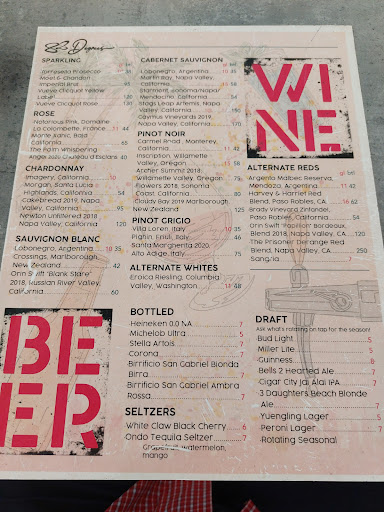 SPARKLING
Imperial Brut
Vueve Clicquot Yellow
Label 120
Vueve Clicquot Rose 130
ROSE
Notorious Pink, Domaine
La Colombette, France 11 44
Monte Ranis, Bare
California
The Palm Whispering
Angel 2020 Chateau d'Esclans
CHARDONNAY
Imagery, California 10
Morgan, Santa Lucia
Highlands, California 54
Cakebread 2019, Napa
Valley, California 95
Newton Unfiltered 2018
Napa Valley, California 120
SAUVIGNON BLANC
Lobonegro, Argentina 10 35
Crossings, Marlborough,
New Zealand 42
Orin Swift "Blank Stare"
2018, Russian River Valley,
California 60
BE
ER
CABERNET SAUVIGNON
Lobonegro, Argentina 10 35
Napa Valley, California
Starmont, Sonoma/Napa/
Mendocino, California 54
Stags Leap Artemis, Napa
Valley, California 150
Caymus Vineyards 2019,
Napa Valley, California 170
PINOT NOIR
Carmel Road, Monterey,
California 11 42
Inscription, Willamette
Valley, Oregon 58
Archer Summit 2018
Willamette Valley, Oregon 75
Flowers 2018, Sonoma
Coast, California 80
Cloudy Bay 2019 Marlborough
New Zealand 125
PINOT GRIGIO
Villa Loren, Italy 10 35
Pighin, Friuli, Italy 46
Santa Margherita 2020,
Alto Adige, Italy 75
ALTERNATE WHITES
Eroica Riesling, Columbia
Valley, Washington 11 48
BOTTLED
Heineken 0.0 NA 7
Michelob Ultra 5
Stella Artois 7
Corona 7
Birrificio San Gabriel Bionda
Birra 7
Birrificio San Gabriel Ambra
Rossa 7
SELTZERS
White Claw Black Cherry 6
Onda Tequila Seltzer 7
Grapefruit, watermelon,
mango
WI
NE
ALTERNATE REDS
Argento Malbec Reserva,
Mendoza, Argentina 11 42
Harvey & Harriet Red
Blend, Paso Robles, CA 16 62
Brady Vineyard Zinfandel,
Paso Robles, California 54
Orin Swift "Papillon" Bordeaux
Blend 2018, Napa Valley, CA 120
The Prisoner Derange Red
Blend, Napa Valley, CA 250
Sangria 7
DRAFT
Ask what's rotating on tap for the season!
Bud Light 5
Miller Lite 5
Guinness 8
Bells 2 Hearted Ale 7
Cigar City Jai Alai IPA 7
3 Daughters Beach Blonde
Ale 7
Yuengling Lager 5
Peroni Lager 7
Rotating Seasonal